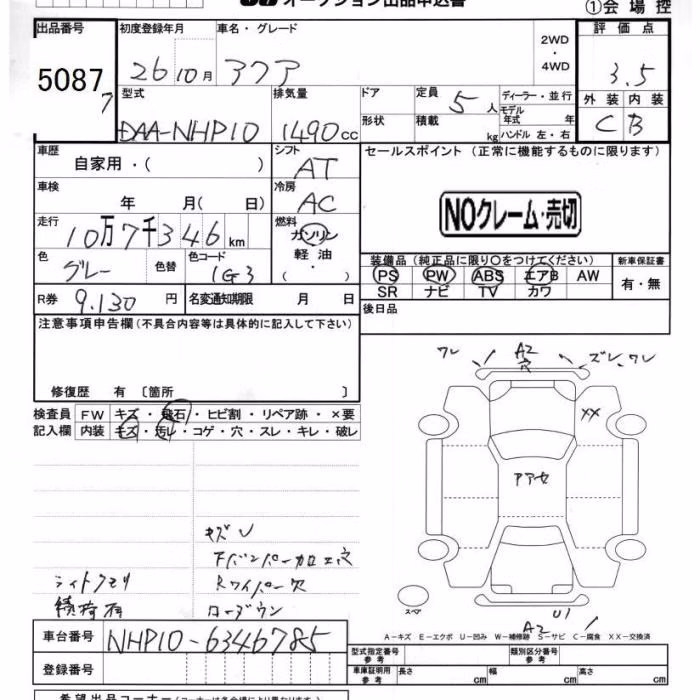 オークション出品申込書
①会場控
出品番号
5087
7
初度登録年月
26 10月
車名・グレード
アクア
2WD
・
4WD
評価点
3.5
外装 内装
C B
型式
DAA-NHP10
排気量
1490cc
ドア
形状
定員 5人
積載 kg
ディーラー・並行
モデル年式 年
ハンドル 左・右
車歴
自家用・( )
シフト
AT
車検
年 月( 日)
冷房
AC
走行
10万7千346km
燃料
ガソリン
軽油
( ・ )
色
グレー
色替
色コード
1G3
R券 9.130円
名変通知期限 月 日
セールスポイント(正常に機能するものに限ります)
NOクレーム・売切
装備品(純正品に限り○をつけてください)
PS PW ABS エアB AW
SR ナビ TV カワ
新車保証書
有・無
後日品
注意事項申告欄(不具合内容等は具体的に記入して下さい)
修復歴 有〔箇所 〕
検査員 FW キズ・飛石・ヒビ割・リペア跡・×要
記入欄 内装 キズ・汚レ・コゲ・穴・スレ・キレ・破レ
ワレ
A2
穴
ズレ、ワレ
XX
アアセ
スペア
U1
A2
キズ U
下バンパーカロエ穴
ライトクモリ
Rワイパー欠
ローダウン
A−キズ E−エクボ U−凹み W−補修跡 S−サビ C−腐食 XX−交換済
車台番号 NHP10-6346785
登録番号
型式指定番号
参考
類別区分番号
参考
車庫証明用
参考
長さ cm
幅 cm
高さ cm
希望出品コーナー